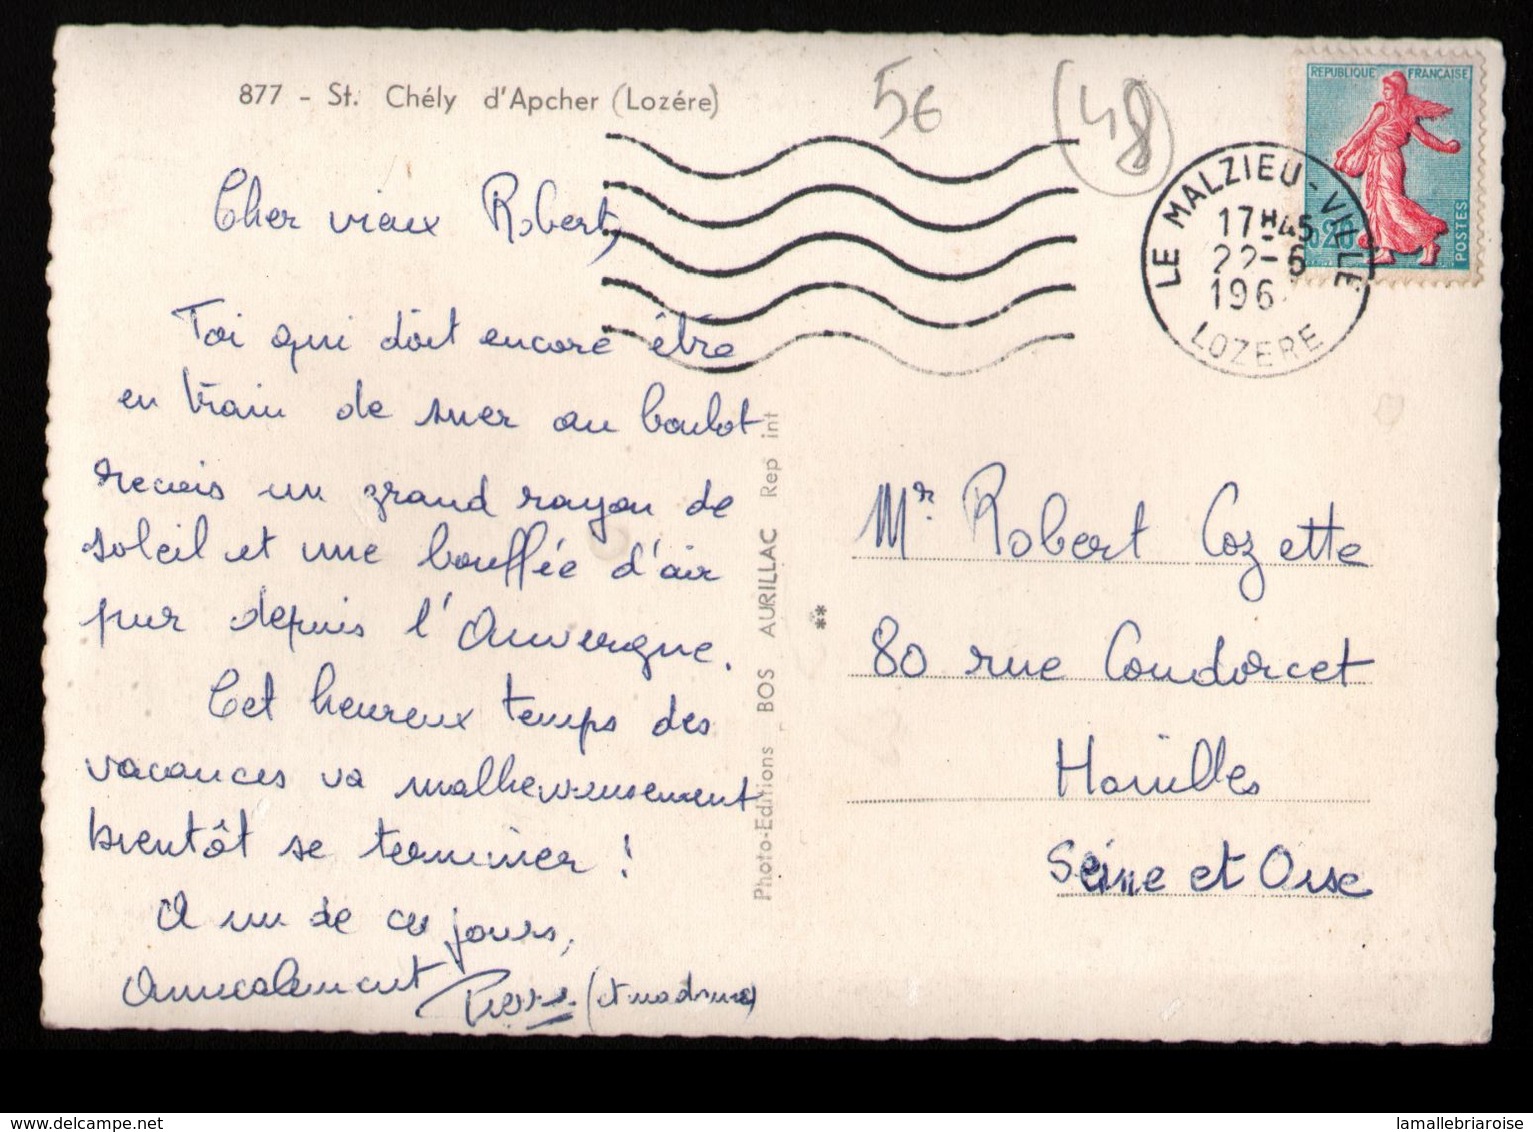 877 - St. Chély d'Apcher (Lozére)
5€
(48)
REPUBLIQUE FRANÇAISE
0,20
POSTES
LE MALZIEU-VILLE
17H45
22-6
196
LOZERE
Cher vieux Robert,
Toi qui doit encore être
en train de suer au boulot
recueis un grand rayon de
soleil et une bouffée d'air
pur depuis l'Auvergne.
Cet heureux temps des
vacances va malheureusement
bientôt se terminer !
A un de ces jours,
Amicalement Pierre (et madame)
Photo-Editions BOS AURILLAC Rep int
**
Mr. Robert Cozette
80 rue Condorcet
Houilles
Seine et Oise
lamallebriaroise